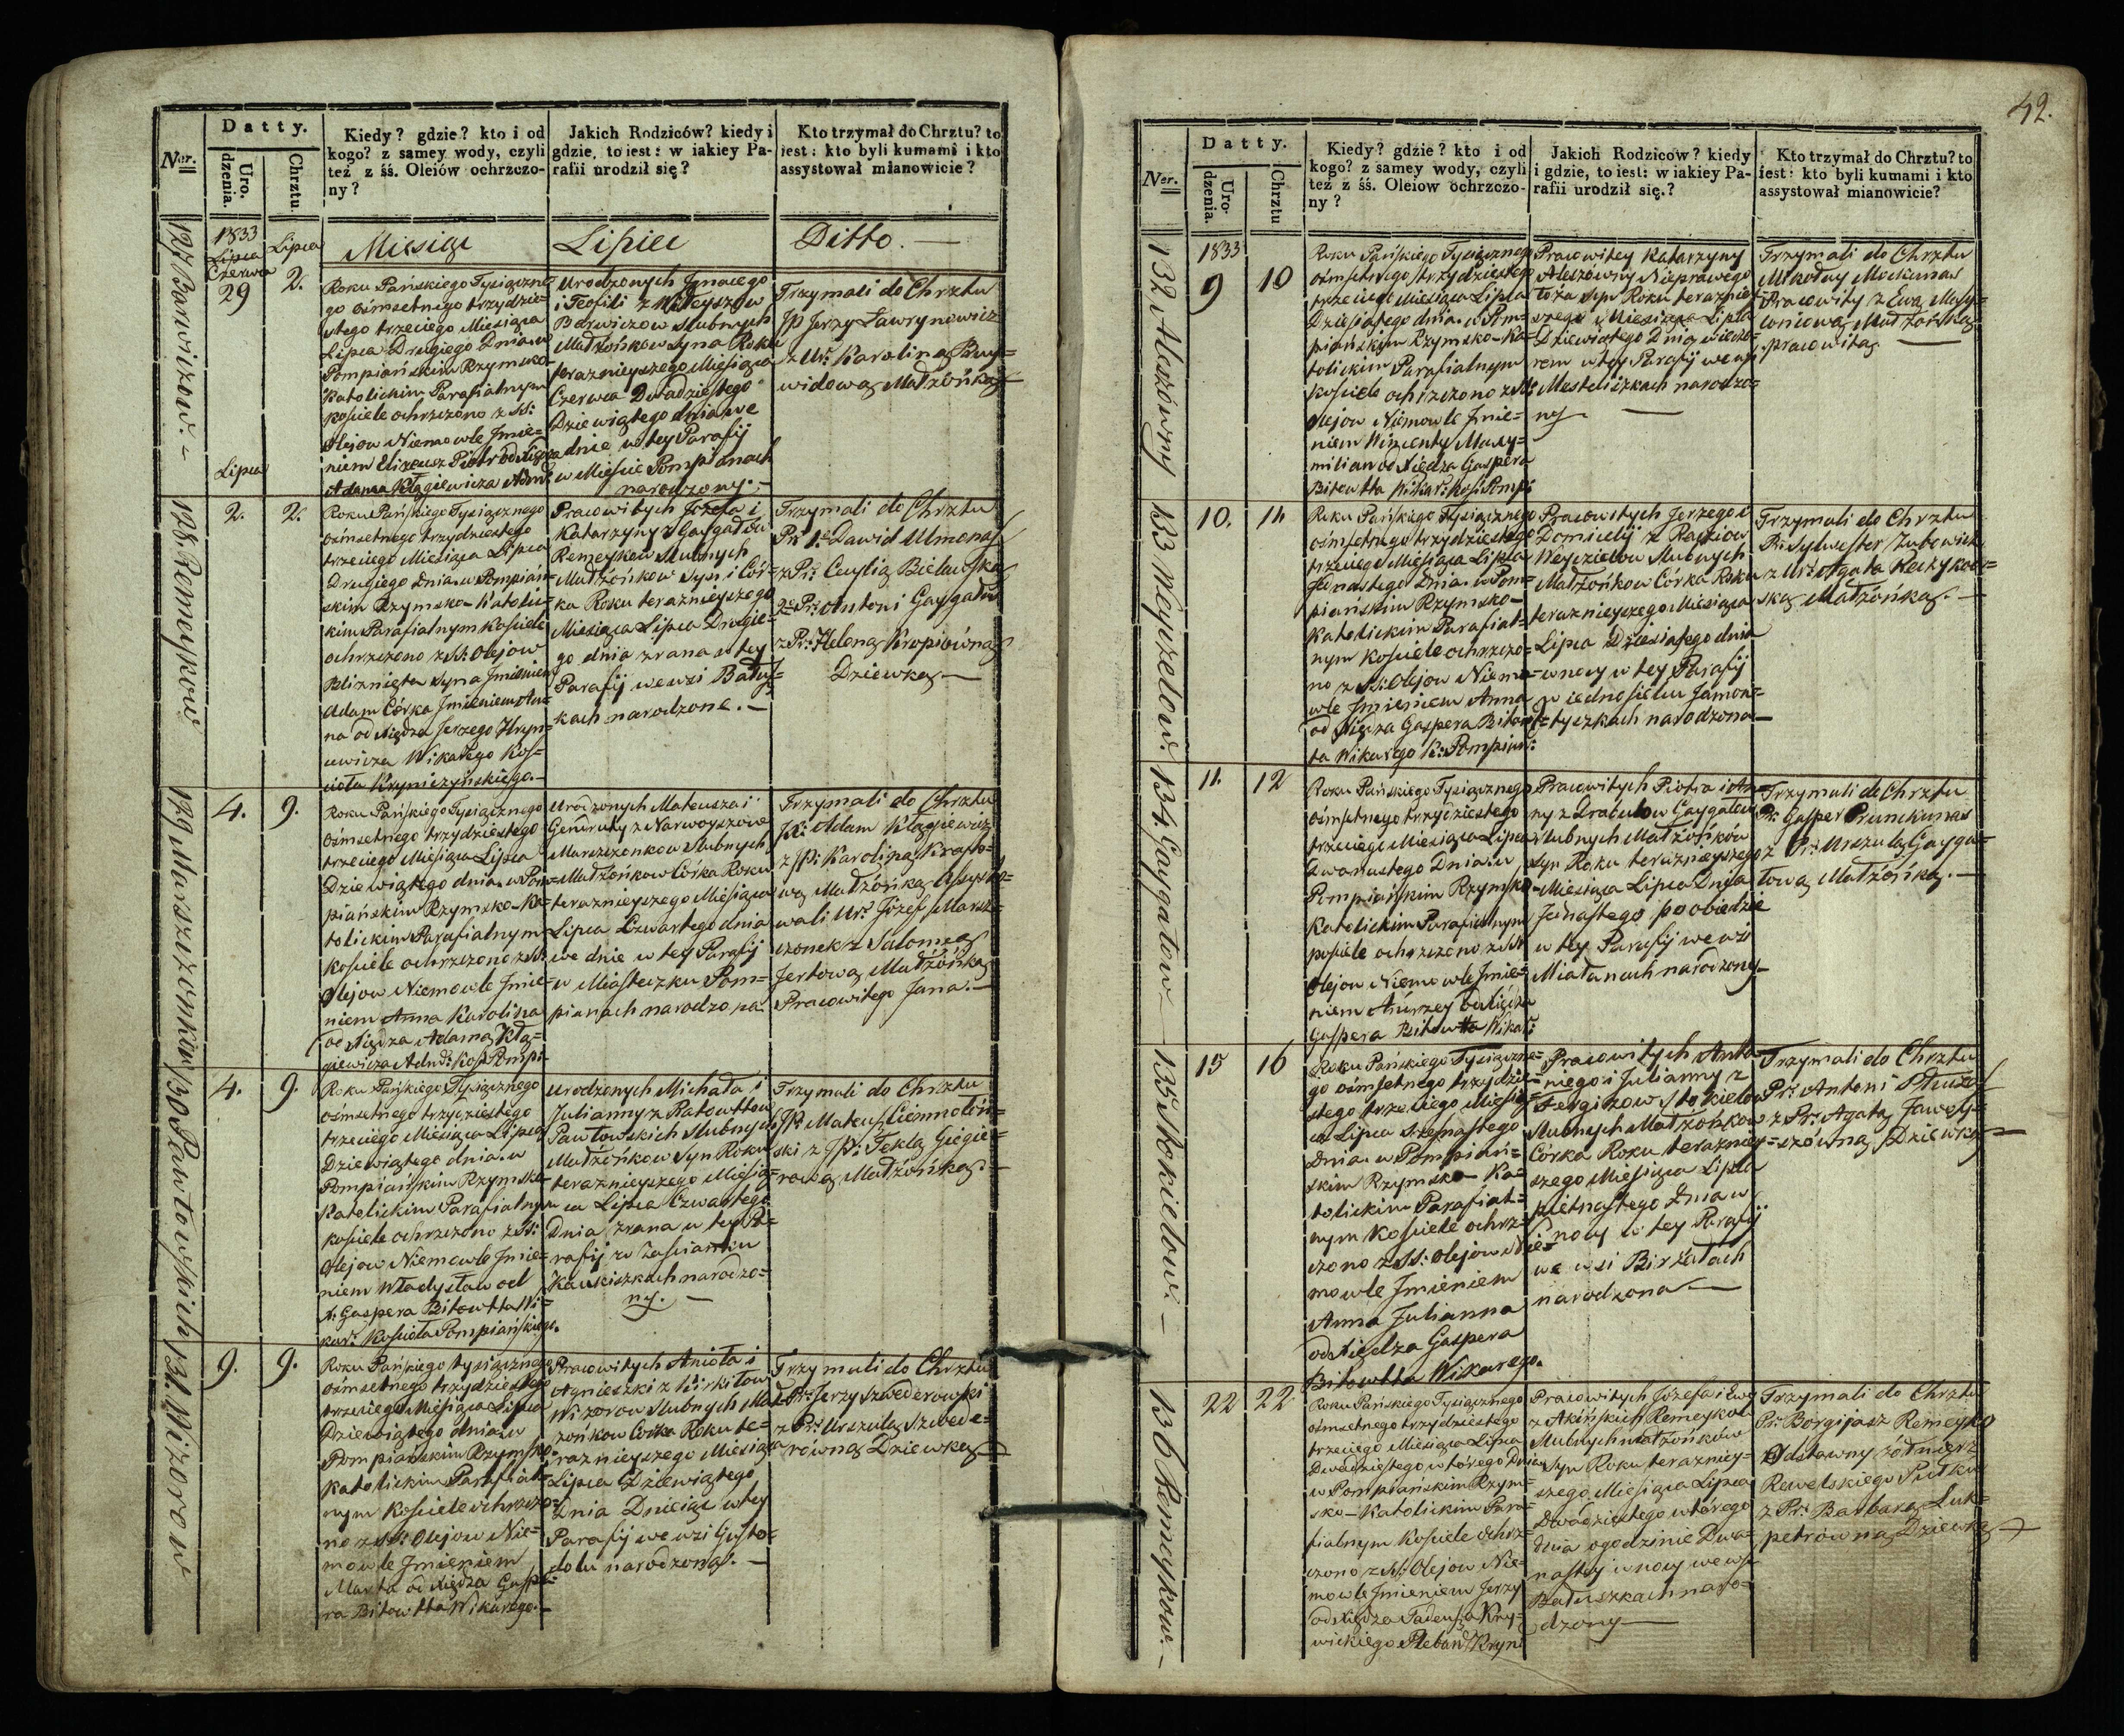 Datty.
Ner.
Uro.
dzenia.
Chrztu
Kiedy? gdzie? kto i od
kogo? z samey wody, czyli
też z śś. Oleiów ochrzczo-
ny?
Jakich Rodziców? kiedy i
gdzie, to iest: w iakiey Pa-
rafii urodził się?
Kto trzymał do Chrztu? to
iest: kto byli kumami i kto
assystował mianowicie?
1833
Lipca
Czerwca
29
Lipca
2.
Miesiąc
Lipiec
Ditto. —
127 Barwiczow. —
Roku Pańskiego Tysiączne
go ośmsetnego trzydzie=
stego trzeciego Miesiąca
Lipca Drugiego Dnia w
Pompiańskim Rzymsko
Katolickim Parafialnym
Kościele ochrzczono z SS:
Olejow Niemowle Jmie=
niem Elizeusz Piotr od Xiędza
Adama Kłągiewicza Adm:
Urodzonych Jgnacego
i Teofili z
Barwiczow Slubnych
Małżonkow Syna Roku
teraznieyszego Miesiąca
Czerwca Dwadziestego
Dziewiątego dnia we
dnie w tey Parafij
w Mieście Pompianach
narodzony. —
Trzymali do Chrztu
JP Jerzy Ławrynowicz
z Ur: Karoliną
widową Małżonką
Lipca
128 Remeykow
2.
2.
Roku Pańskiego Tysiącznego
ośmsetnego trzydziestego
trzeciego Miesiąca Lipca
Drugiego Dnia w Pompiań=
skim Rzymsko-Katolic=
kim Parafialnym Kościele
ochrzczono z SS: Olejow
Bliznięta Syna Jmieniem
Adam Córka Jmieniem An=
na od Xiędza Jerzego Hryn=
cewicza Wikarego Koś=
cioła Kryniczyńskiego. —
Pracowitych Józefa i
Katarzyny z Gaygałow
Remeykow Slubnych
Małżonkow Syn i Cór=
ka Roku teraznieyszego
Miesiąca Lipca Drugie=
go dnia z rana w tey
Parafij we wsi Batuś=
kach narodzone. —
Trzymali do Chrztu
Pr: 1e Dawid Ulmonas
z Pr: Cecylią Bielawską
2e Pr: Antoni Gaygałas
z Pr: Heleną Kropiówną
Dziewką —
129 Marszczonkow
4.
9.
Roku Pańskiego Tysiącznego
ośmsetnego trzydziestego
trzeciego Miesiąca Lipca
Dziewiątego dnia w Pom=
piańskim Rzymsko-Ka=
tolickim Parafialnym
Kościele ochrzczono z SS:
Olejow Niemowle Jmie=
niem Anna Karolina
od Xiędza Adama Kłą=
giewicza Adm: Koś: Pompi:
Urodzonych Mateusza i
Gentruty z Narwoyszow
Marszczonkow Slubnych
Małżonkow Córka Roku
teraznieyszego Miesiąca
Lipca Czwartego dnia
we dnie w tey Parafij
w Miasteczku Pom=
pianach narodzona
Trzymali do Chrztu
JX: Adam Kłągiewicz
z JP: Karoliną
wą Małżonką Assysto=
wali Ur: Józef Marsz=
czonek z Salomeą
Jertową Małżonką
Pracowitego Jana. —
130 Pawłowskich
4.
9.
Roku Pańskiego Tysiącznego
ośmsetnego trzydziestego
trzeciego Miesiąca Lipca
Dziewiątego dnia w
Pompiańskim Rzymsko
Katolickim Parafialnym
Kościele ochrzczono z SS:
Olejow Niemowle Jmie=
niem Władysław od
X: Gaspera Bitowtta Wi=
kar: Kościoła Pompiańskiego.
Urodzonych Michała i
Julianny z Ratowttow
Pawłowskich Slubnych
Małżonkow Syn Roku
teraznieyszego Miesią=
ca Lipca Czwartego
Dnia z rana w tey Pa=
rafij w Zaścianku
Kaukiszkach narodzo=
ny. —
Trzymali do Chrztu
JP: Mateusz Ciemnołoń=
ski z JP: Teklą Giegie=
rową Małżonką. —
131. Wizorow
9.
9.
Roku Pańskiego tysiącznego
ośmsetnego trzydziestego
trzeciego Miesiąca Lipca
Dziewiątego dnia w
Pompiańskim Rzymsko
Katolickim Parafial=
nym Kościele ochrzczo=
no z SS: Olejow Nie=
mowle Jmieniem
Marta od Xiędza Gaspe=
ra Bitowtta Wikarego. —
Pracowitych Anioła i
Agnieszki z Kirkiłow
Wizorow Slubnych Mał=
żonkow Córka Roku te=
raznieyszego Miesiąca
Lipca Dziewiątego
Dnia Dnieiąc w tey
Parafij we wsi Gusto=
dolu narodzona. —
Trzymali do Chrztu
Pr: Jerzy Szwederowski
z Pr: Urszulą Szwede=
równą Dziewką
42.
Datty.
Ner.
Uro-
dzenia.
Chrztu
Kiedy? gdzie? kto i od
kogo? z samey wody, czyli
też z śś. Oleiow ochrzczo-
ny?
Jakich Rodzicow? kiedy
i gdzie, to iest: w iakiey Pa-
rafii urodził się.?
Kto trzymał do Chrztu? to
iest: kto byli kumami i kto
assystował mianowicie?
1833
132 Aleszówny
9
10
Roku Pańskiego Tysiącznego
ośmsetnego trzydziestego
trzeciego Miesiąca Lipca
Dziesiątego dnia w Pom=
piańskim Rzymsko-Ka=
tolickim Parafialnym
Kościele ochrzczono z SS:
Olejow Niemowle Jmie=
niem Wincenty Maxy=
milian od Xiędza Gaspera
Bitowtta Wikar: Koś: Pomp:
Pracowitey Katarzyny
Aleszówny Nieprawego
Łoża Syn Roku teraznie
yszego Miesiąca Lipca
Dziewiątego Dnia wieczo=
rem w tey Parafij we wsi
Mesteliszkach narodzo=
ny. —
Trzymali do Chrztu
Mikołay Mockunas
Pracowity z Ewą Masy=
loniową Małżonką
pracowitą —
133 Weyszelow.
10.
11
Roku Pańskiego Tysiącznego
ośmsetnego trzydziestego
trzeciego Miesiąca Lipca
Jednastego Dnia w Pom=
piańskim Rzymsko-
Katolickim Parafial=
nym Kościele ochrzczo=
no z SS: Olejow Niemo=
wle Jmieniem Anna
od Xiędza Gaspera Bitowt=
ta Wikarego K: Pompiań:
Pracowitych Jerzego i
Domicely z Rapkiow
Weyszelow Slubnych
Małżonkow Córka Roku
teraznieyszego Miesiąca
Lipca Dziesiątego dnia
w nocy w tey Parafij
w iednosielu Jamon=
tyszkach narodzona —
Trzymali do Chrztu
Pr: Sylwester Zubowicz
z Ur: Agatą Raczykow=
ską Małżonką. —
134 Gaygałow —
11.
12
Roku Pańskiego Tysiącznego
ośmsetnego trzydziestego
trzeciego Miesiąca Lipca
Dwanastego Dnia w
Pompiańskim Rzymsko
Katolickim Parafialnym
Kościele ochrzczono z SS:
Olejow Niemowle Jmie=
niem Andrzey od Xiędza
Gaspera Bitowtta Wikar:
Pracowitych Piotra i An=
ny z Drabulow Gaygałow
Slubnych Małżonkow
Syn Roku teraznieyszego
Miesiąca Lipca Dnia
Jednastego po obiedzie
w tey Parafij we wsi
Miałanach narodzony —
Trzymali do Chrztu
Pr: Gasper Prunckunas
z Pr: Urszulą Gayga=
łową Małżonką. —
135 Stokielow —
15
16
Roku Pańskiego Tysiączne=
go ośmsetnego trzydzie=
stego trzeciego Miesią=
ca Lipca Szesnastego
Dnia w Pompiań=
skim Rzymsko-Ka=
tolickim Parafial=
nym Kościele ochrz=
czono z SS: Olejow Nie=
mowle Jmieniem
Anna Julianna
od Xiędza Gaspera
Bitowtta Wikarego.
Pracowitych Anto=
niego i Julianny z
Sergizow Stokielow
Slubnych Małżonkow
Córka Roku terazniey=
szego Miesiąca Lipca
pietnastego Dnia w
nocy w tey Parafij
we wsi Birżałach
narodzona —
Trzymali do Chrztu
Pr: Antoni
z Pr: Agatą Jawey=
szówną Dziewką —
136 Remeykow. —
22
22
Roku Pańskiego Tysiącznego
ośmsetnego trzydziestego
trzeciego Miesiąca Lipca
Dwadziestego wtórego Dnia
w Pompiańskim Rzym=
sko-Katolickim Para=
fialnym Kościele ochrz=
czono z SS: Olejow Nie=
mowle Jmieniem Jerzy
od Xiędza Tadeusza Kry=
wickiego Pleban: Kryn:
Pracowitych Józefa i Ewy
z Akińskich Remeykow
Slubnych małżonkow
Syn Roku teraznieyszego
Miesiąca Lipca
Dwadziestego wtórego
dnia o godzinie Dwa=
nastey w nocy we wsi
Batuszkach naro=
dzony —
Trzymali do Chrztu
Pr: Borgijasz Remeyko
Odstawny żołnierz
Rewelskiego Pułku
z Pr: Barbarą Luk=
petrówną Dziewką